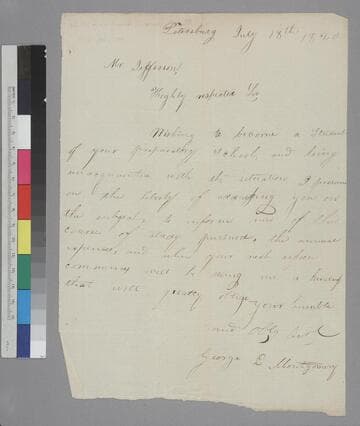 Petersburg July 18th 1840
Mr. Jefferson,
Highly respected Sir
Wishing to become a Student
of your preparatory school, and being
unacquainted with the situation I presume
on the liberty of you on
the subject, to inform me of the
course of study pursued, the annual
expenses, and when your next session
commences will be doing me a
that will greatly oblige your humble
and Obt Svt
George E Montgomery